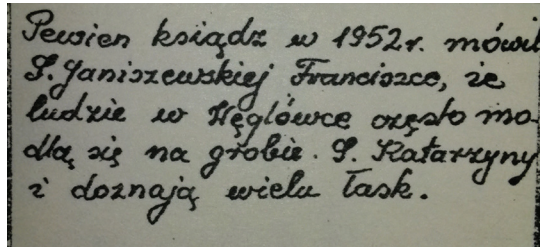 Pewien ksiądz w 1952r. mówił
S. Janiszewskiej Franciszce, że
ludzie w Węglówce często mo-
dlą się na grobie S. Katarzyny
i doznają wielu łask.